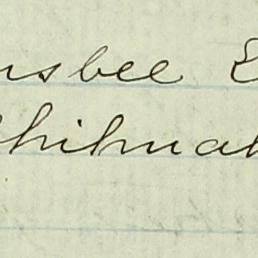 usbee E
Chihuah